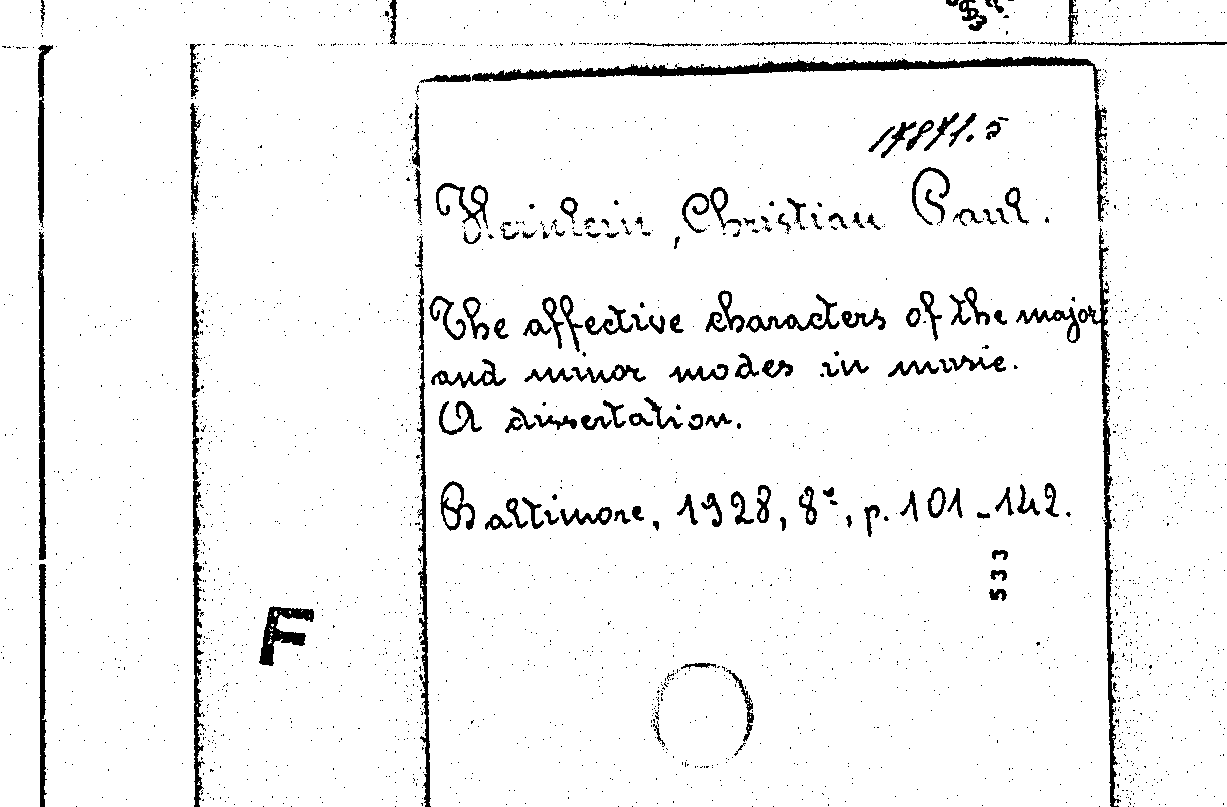 17871.5
Heinlein, Christian Paul.
The affective characters of the major
and minor modes in music.
A dissertation.
Baltimore, 1928, 8°, p. 101-142.
533
F